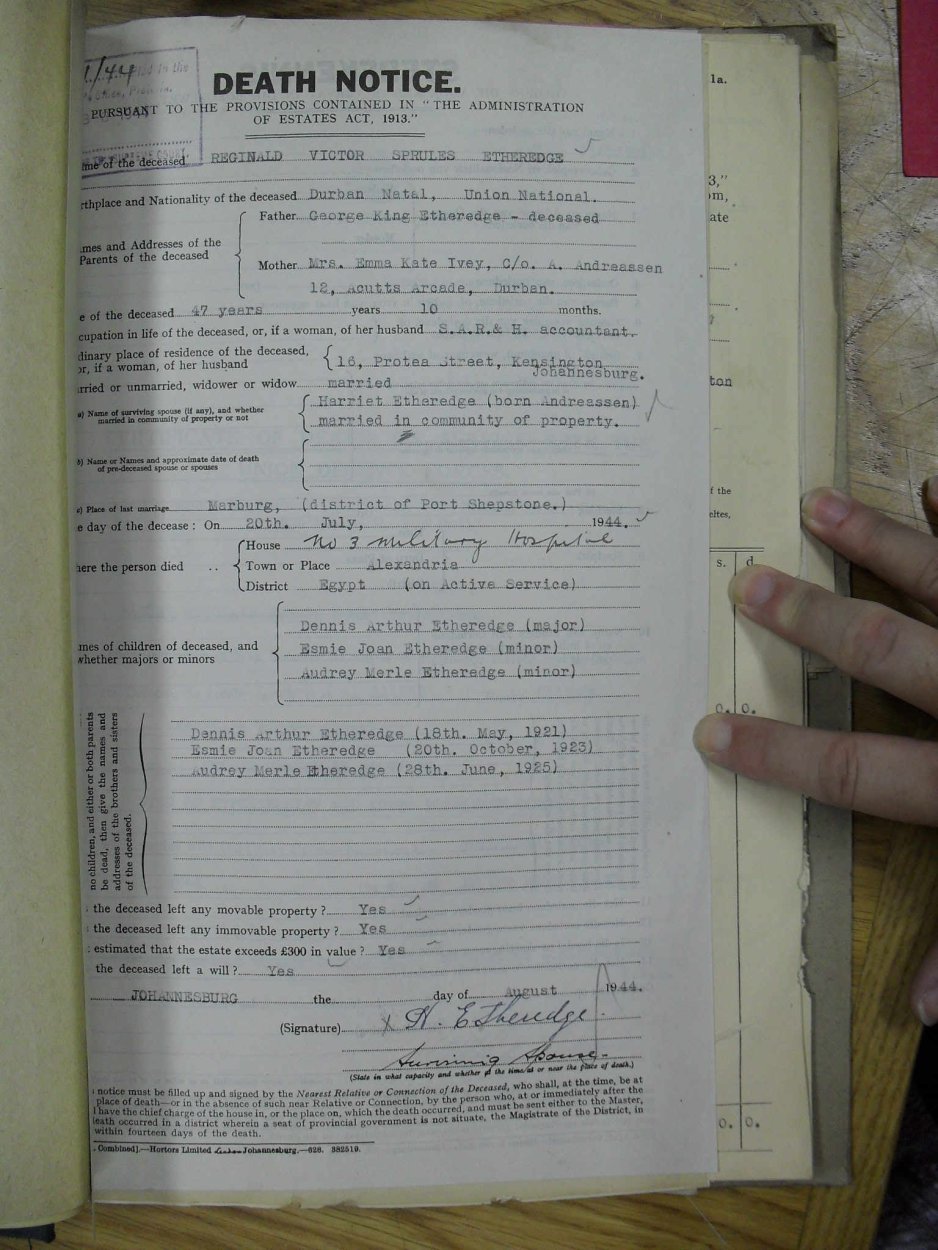 1/44
DEATH NOTICE.
PURSUANT TO THE PROVISIONS CONTAINED IN "THE ADMINISTRATION
OF ESTATES ACT, 1913."
me of the deceased REGINALD VICTOR SPRULES ETHEREDGE
rthplace and Nationality of the deceased Durban Natal, Union National.
Father George King Etheredge - deceased
mes and Addresses of the
Parents of the deceased
Mother Mrs. Emma Kate Ivey, C/o. A. Andreassen
12, Acutts Arcade, Durban.
e of the deceased 47 years years 10 months.
cupation in life of the deceased, or, if a woman, of her husband S.A.R.& H. accountant.
dinary place of residence of the deceased,
or, if a woman, of her husband 16, Protea Street, Kensington
Johannesburg.
rried or unmarried, widower or widow married
a) Name of surviving spouse (if any), and whether
married in community of property or not
Harriet Etheredge (born Andreassen)
married in community of property.
b) Name or Names and approximate date of death
of pre-deceased spouse or spouses
c) Place of last marriage Marburg, (district of Port Shepstone.)
e day of the decease: On 20th. July, 1944.
House No 3 Military Hospital
here the person died .. Town or Place Alexandria
District Egypt (on Active Service)
Dennis Arthur Etheredge (major)
mes of children of deceased, and
whether majors or minors
Esmie Joan Etheredge (minor)
Audrey Merle Etheredge (minor)
no children, and either or both parents
be dead, then give the names and
addresses of the brothers and sisters
of the deceased.
Dennis Arthur Etheredge (18th. May, 1921)
Esmie Joan Etheredge (20th. October, 1923)
Audrey Merle Etheredge (28th. June, 1925)
the deceased left any movable property? Yes
the deceased left any immovable property? Yes
estimated that the estate exceeds £300 in value? Yes
the deceased left a will? Yes
JOHANNESBURG the day of August 1944.
(Signature) X H. Etheredge
Surviving Spouse.
(State in what capacity and whether at the time/at or near the place of death.)
notice must be filled up and signed by the Nearest Relative or Connection of the Deceased, who shall, at the time, be at
place of death—or in the absence of such near Relative or Connection, by the person who, at or immediately after the
have the chief charge of the house in, or the place on, which the death occurred, and must be sent either to the Master,
eath occurred in a district wherein a seat of provincial government is not situate, the Magistrate of the District, in
within fourteen days of the death.
Combined].—Hortors Limited Johannesburg.—628. 382519.
1a.
3,"
m,
ate
ton
f the
eltes,
s. d.
0. 0.
0. 0.